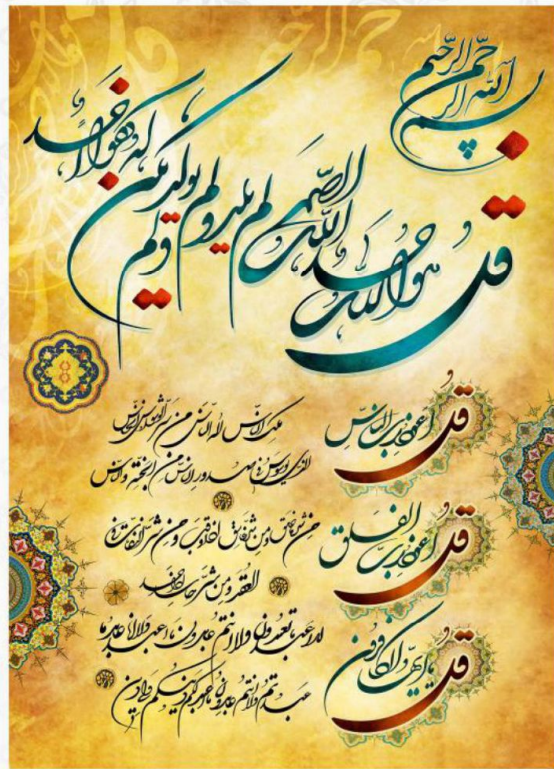 بسم الله الرحمن الرحیم
قل هو الله احد الله الصمد لم یلد و لم یولد و لم یکن له کفوا احد
قل اعوذ برب الناس
ملک الناس اله الناس من شر الوسواس الخناس
الذی یوسوس فی صدور الناس من الجنة والناس
قل اعوذ برب الفلق
من شر ما خلق ومن شر غاسق اذا وقب ومن شر النفاثات فی
العقد ومن شر حاسد اذا حسد
قل یا ایها الکافرون
لا اعبد ما تعبدون ولا انتم عابدون ما اعبد ولا انا عابد ما
عبدتم ولا انتم عابدون ما اعبد لکم دینکم ولی دین